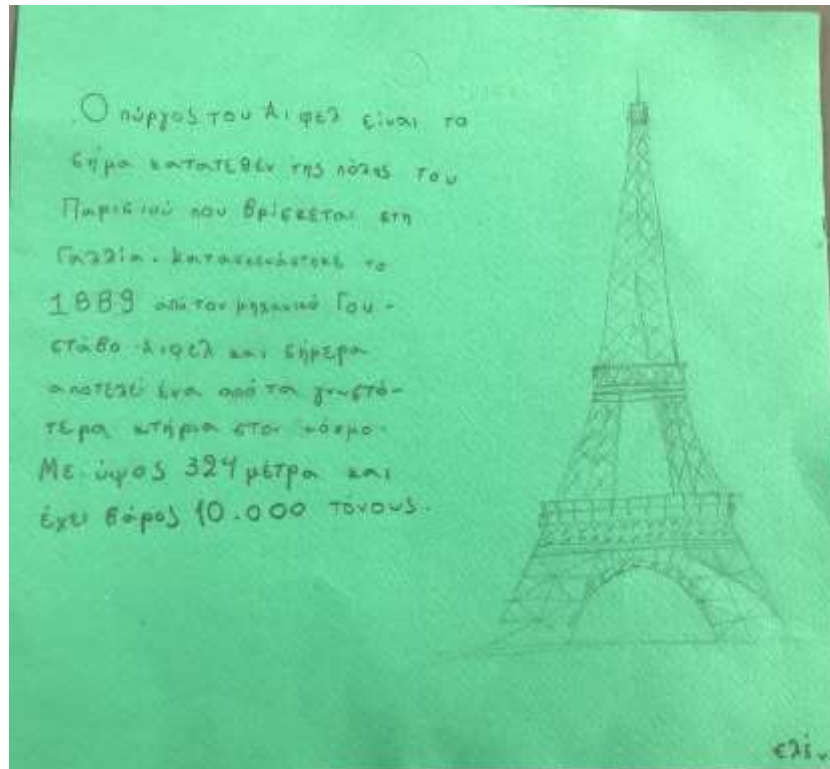 Ο πύργος του Άιφελ είναι το
σήμα κατατεθέν της πόλης του
Παρισιού που βρίσκεται στη
Γαλλία. Κατασκευάστηκε το
1889 από τον μηχανικό Γου-
στάβο Άιφελ και σήμερα
αποτελεί ένα από τα γνωστό-
τερα κτήρια στον κόσμο.
Με ύψος 324 μέτρα και
έχει βάρος 10.000 τόνους.